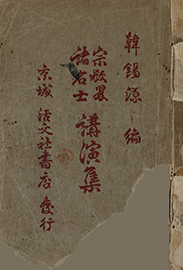 韓錫源 編
宗敎界
諸名士
講演集
京城 活文社書店 發行